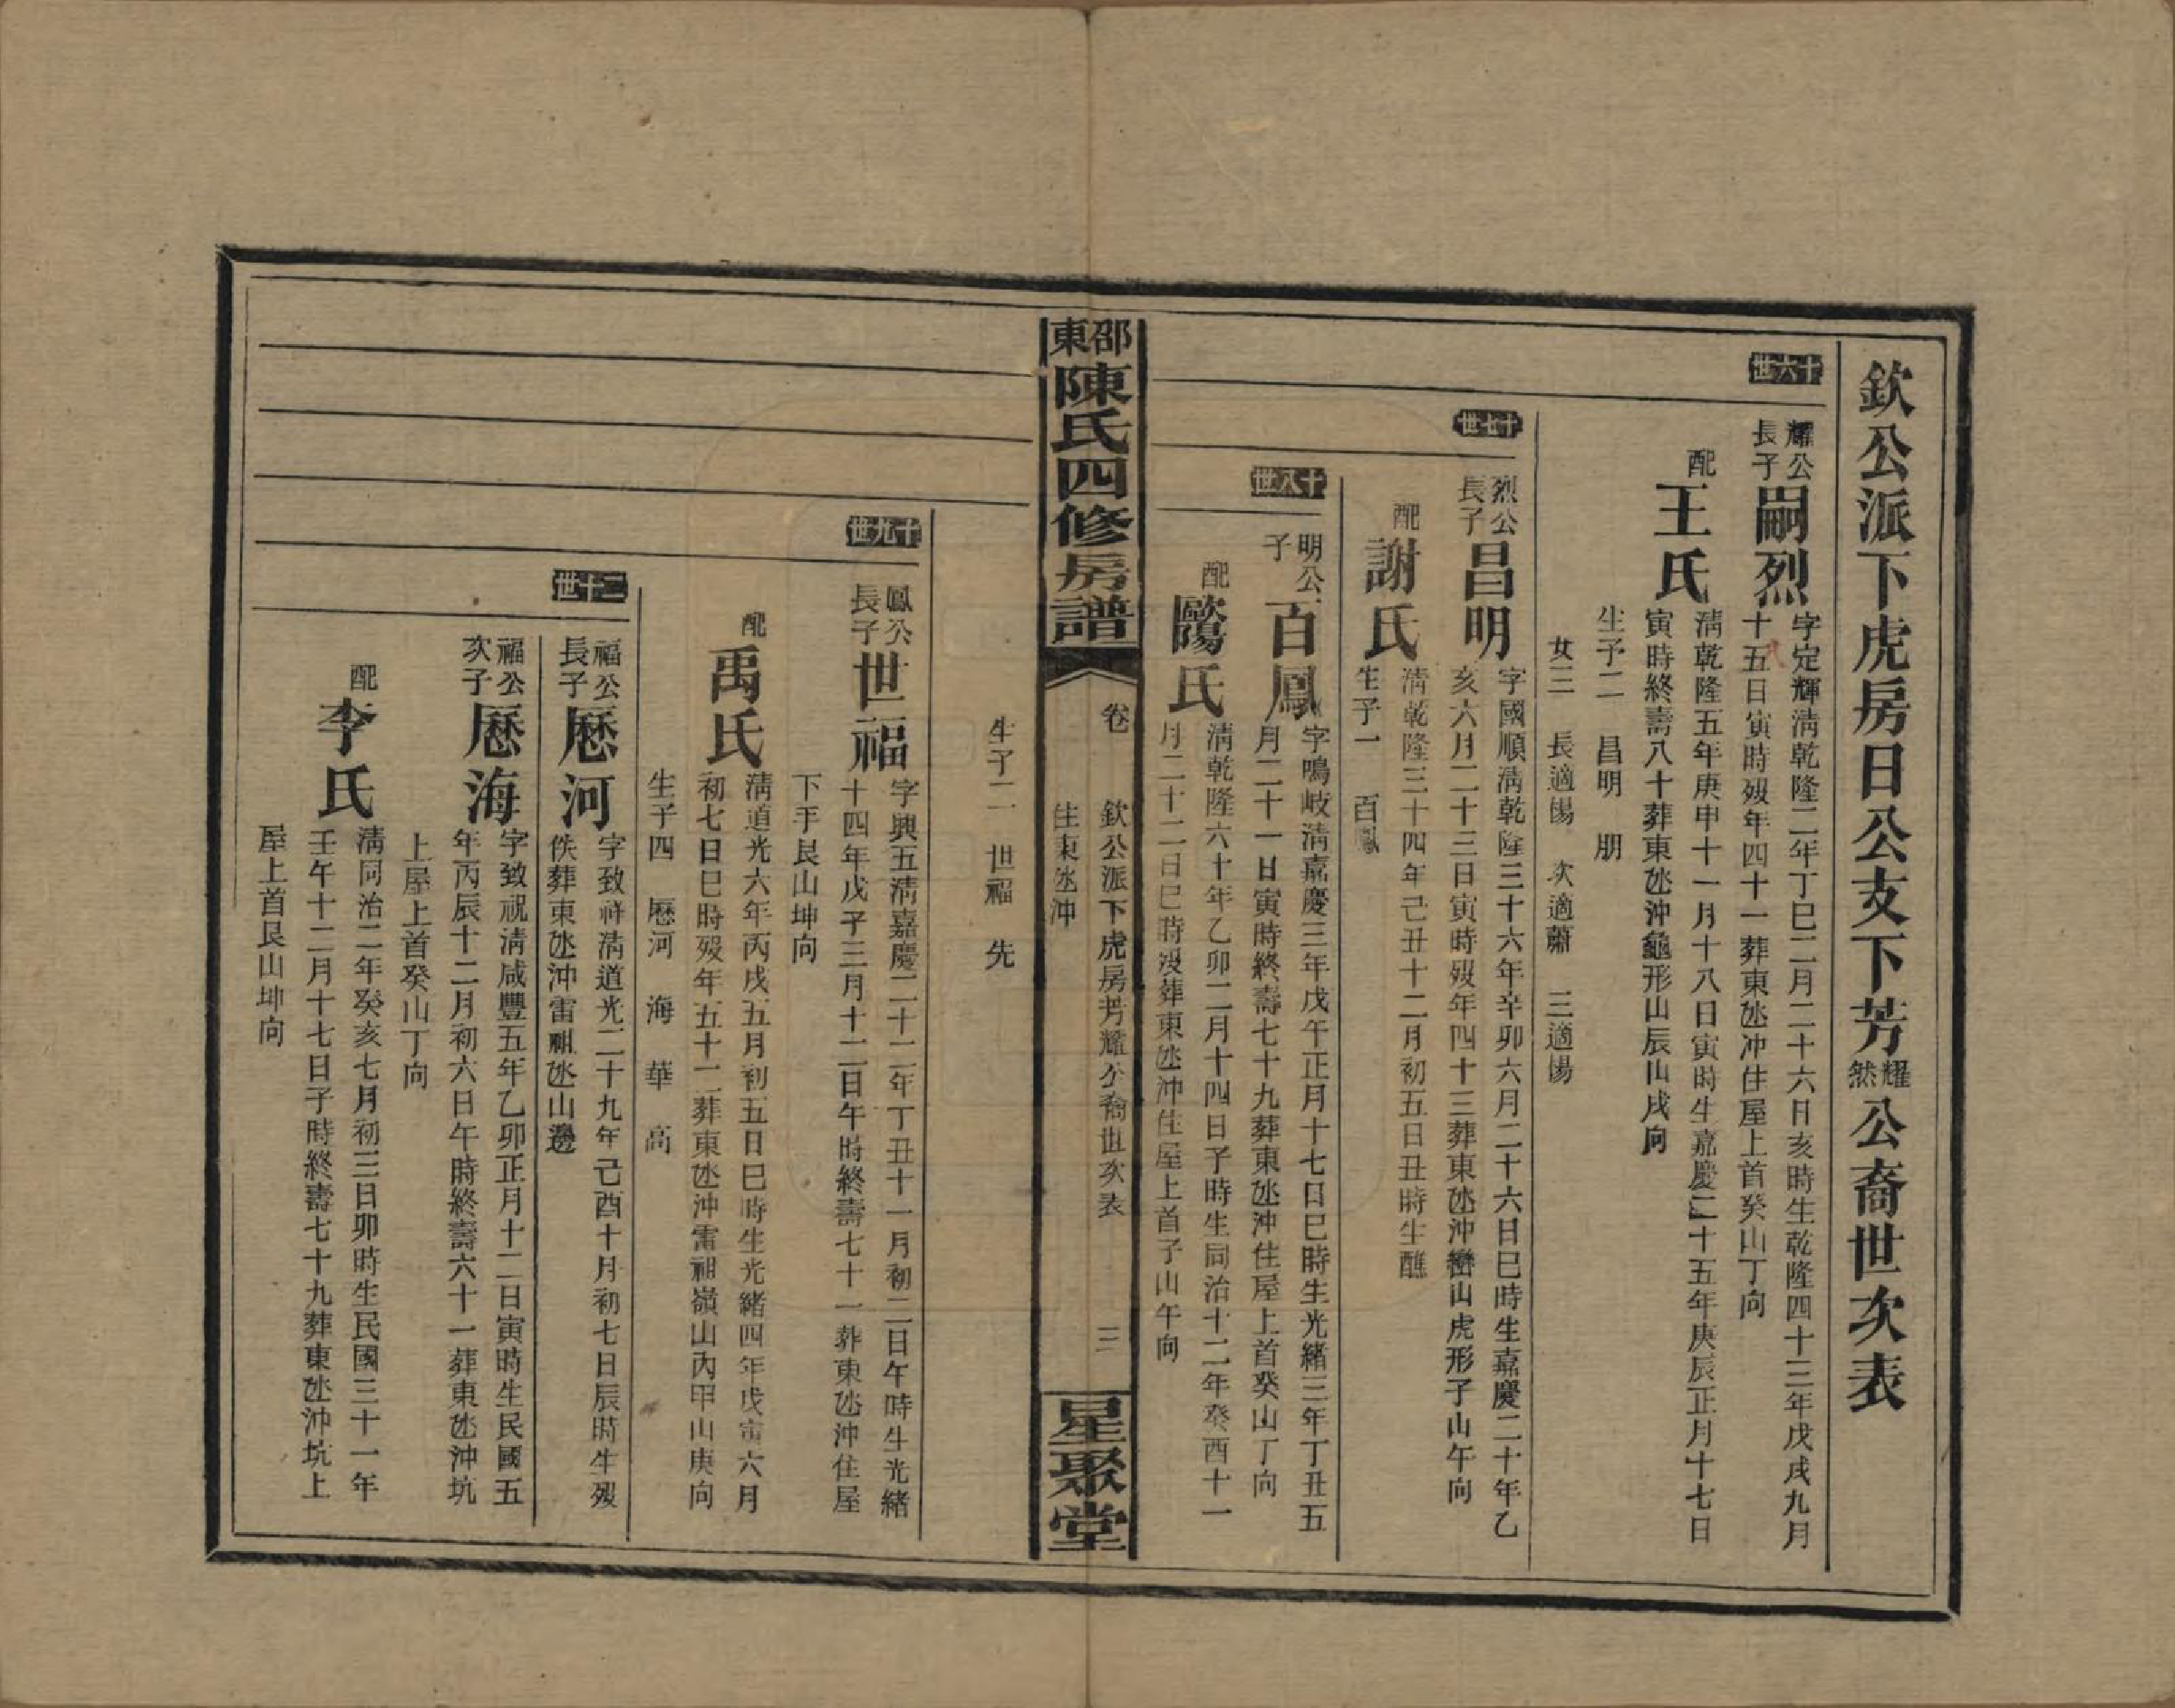 欽公派下虎房日公支下芳耀然公裔世次表
十六世
耀公長子
嗣烈
字定輝清乾隆二年丁巳二月二十六日亥時生乾隆四十三年戊戌九月
十五日寅時歿年四十一葬東氹冲住屋上首癸山丁向
配
王氏
清乾隆五年庚申十一月十八日寅時生嘉慶二十五年庚辰正月十七日
寅時終壽八十葬東氹沖龜形山辰山戌向
生子二 昌明 朋
女三 長適楊 次適蕭 三適楊
十七世
烈公長子
昌明
字國順清乾隆三十六年辛卯六月二十六日巳時生嘉慶二十年乙
亥六月二十三日寅時歿年四十三葬東氹沖巒山虎形子山午向
配
謝氏
清乾隆三十四年己丑十二月初五日丑時生醮
生子一 百鳳
十八世
明公子
百鳳
字鳴岐清嘉慶三年戊午正月十七日巳時生光緒三年丁丑五
月二十一日寅時終壽七十九葬東氹沖住屋上首癸山丁向
配
歐陽氏
清乾隆六十年乙卯二月十四日子時生同治十二年癸酉十一
月二十二日巳時沒葬東氹沖住屋上首子山午向
邵東陳氏四修房譜
卷
欽公派下虎房芳耀公裔世次表
住東氹沖
三
星聚堂
生子二 世福 先
十九世
鳳公長子
世福
字興五清嘉慶二十二年丁丑十一月初二日午時生光緒
十四年戊子三月十二日午時終壽七十一葬東氹沖住屋
下手艮山坤向
配
禹氏
清道光六年丙戌五月初五日巳時生光緒四年戊寅六月
初七日巳時歿年五十二葬東氹沖雷祖嶺山內甲山庚向
生子四 歷河 海 華 高
二十世
福公長子
歷河
字致祥清道光二十九年己酉十月初七日辰時生歿
佚葬東氹沖雷祖氹山邊
福公次子
歷海
字致祝清咸豐五年乙卯正月十二日寅時生民國五
年丙辰十二月初六日午時終壽六十一葬東氹沖坑
上屋上首癸山丁向
配
李氏
清同治二年癸亥七月初三日卯時生民國三十一年
壬午十二月十七日子時終壽七十九葬東氹沖坑上
屋上首艮山坤向